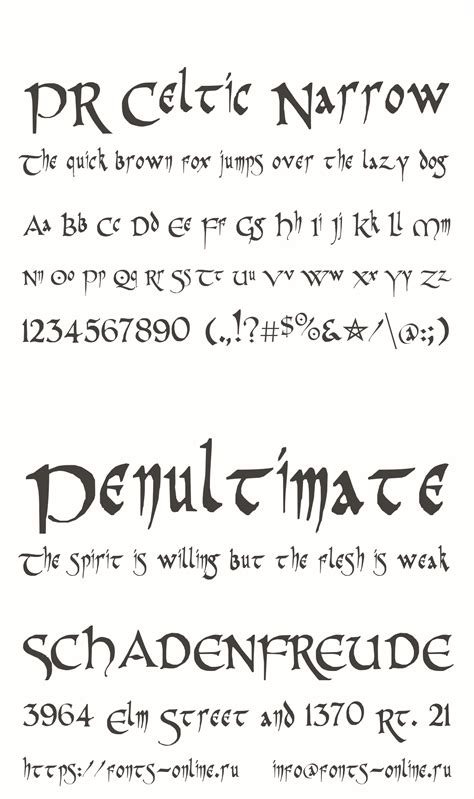 PR Celtic Narrow
The quick brown fox jumps over the lazy dog
Aa Bb Cc Dd Ee Ff Gg Hh Ii Jj Kk Ll Mm
Nn Oo Pp Qq Rr Ss Tt Uu Vv Ww Xx Yy Zz
1234567890 (.,!?#$%&☆/\@:;)
Penultimate
The spirit is willing but the flesh is weak
SCHADENFREUDE
3964 Elm Street and 1370 Rt. 21
https://fonts-online.ru info@fonts-online.ru